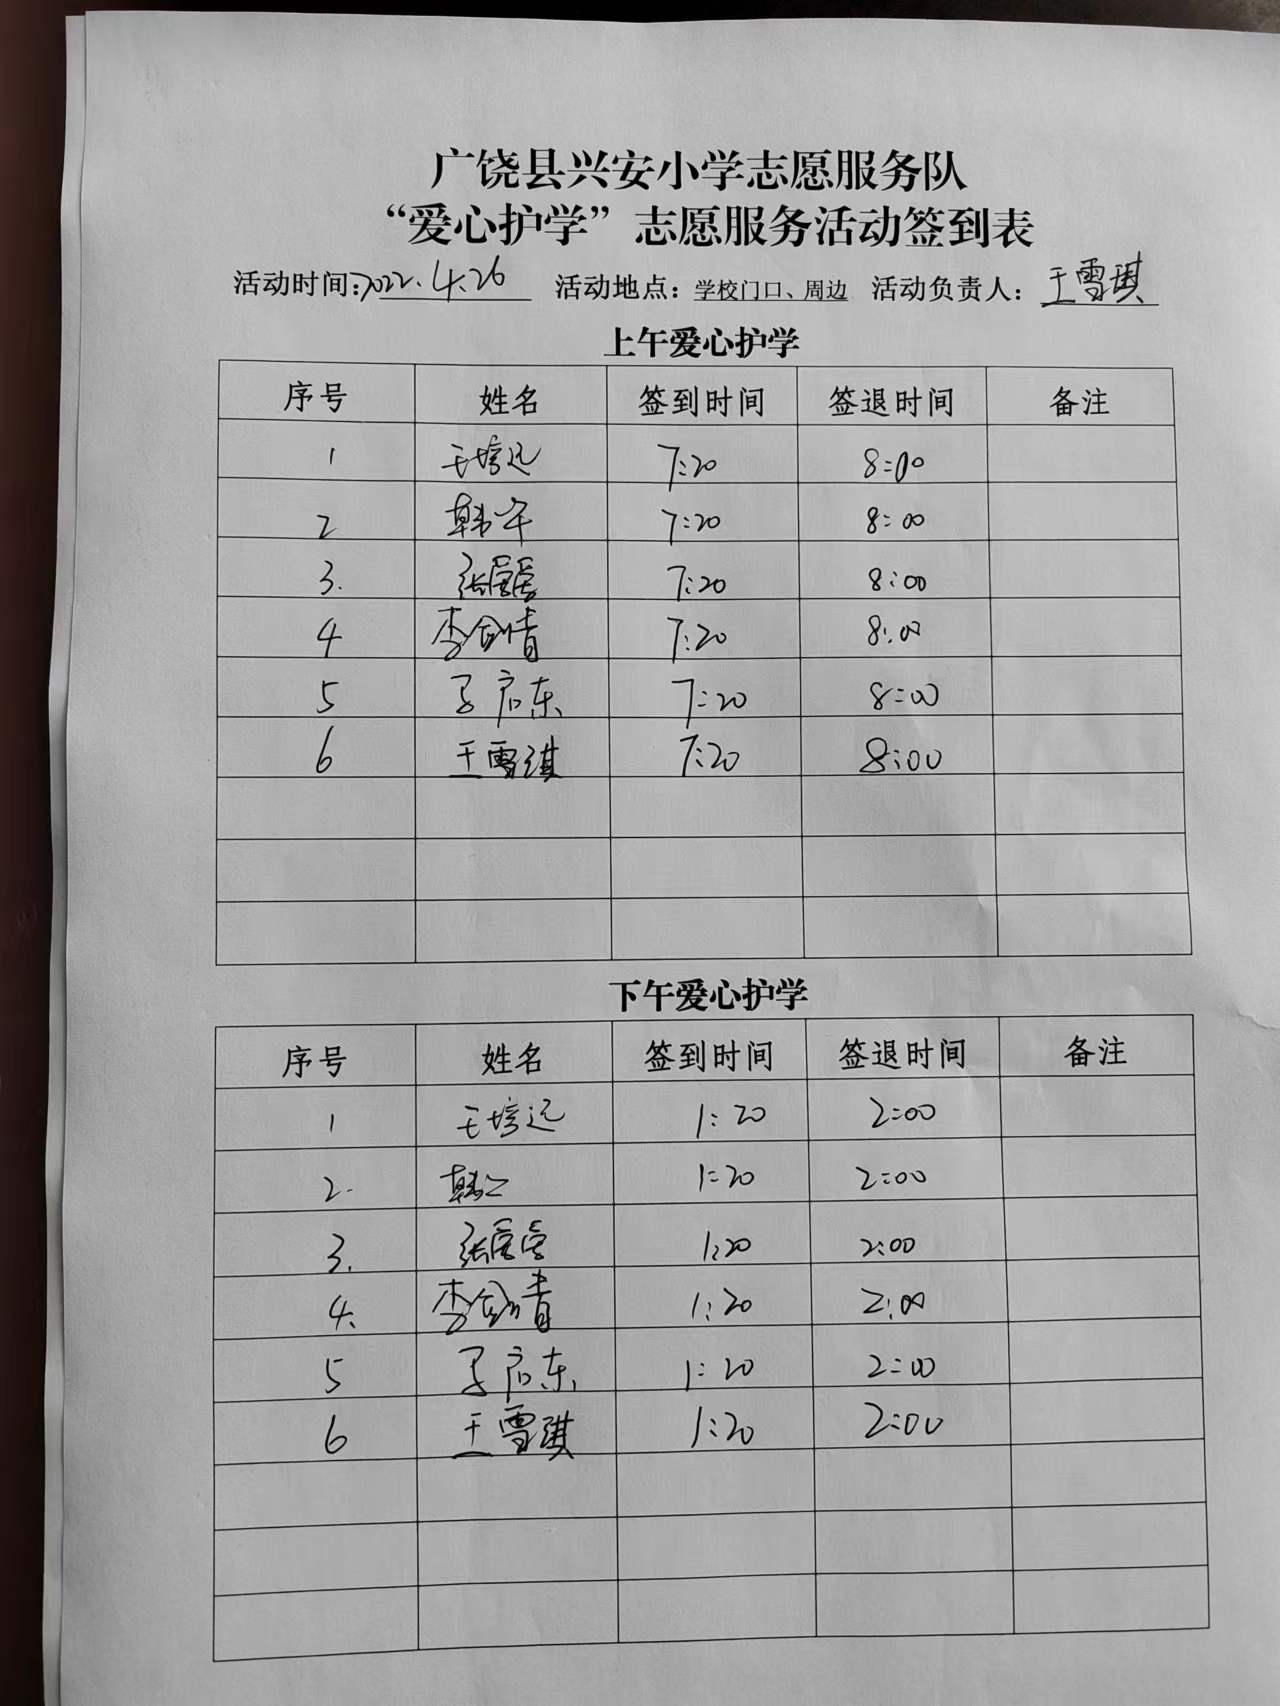 广饶县兴安小学志愿服务队
“爱心护学”志愿服务活动签到表
活动时间:2022.4.26 活动地点: 学校门口、周边 活动负责人: 王雪琪
上午爱心护学
序号 姓名 签到时间 签退时间 备注
1 王培远 7:20 8:00
2 韩 7:20 8:00
3. 张 7:20 8:00
4 李 7:20 8:00
5 启东 7:20 8:00
6 王雪琪 7:20 8:00
下午爱心护学
序号 姓名 签到时间 签退时间 备注
1 王培远 1:20 2:00
2. 韩 1:20 2:00
3. 张 1:20 2:00
4. 李 1:20 2:00
5 启东 1:20 2:00
6 王雪琪 1:20 2:00